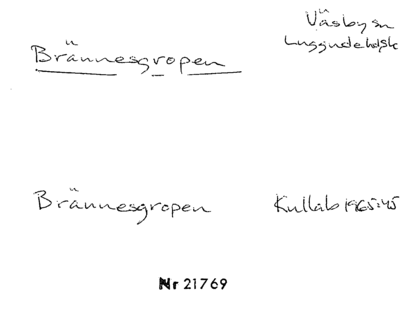 Brännesgropen
Väsby sn
Luggude hd sk
Brännesgropen
Kullab 1965:45
Nr 21769